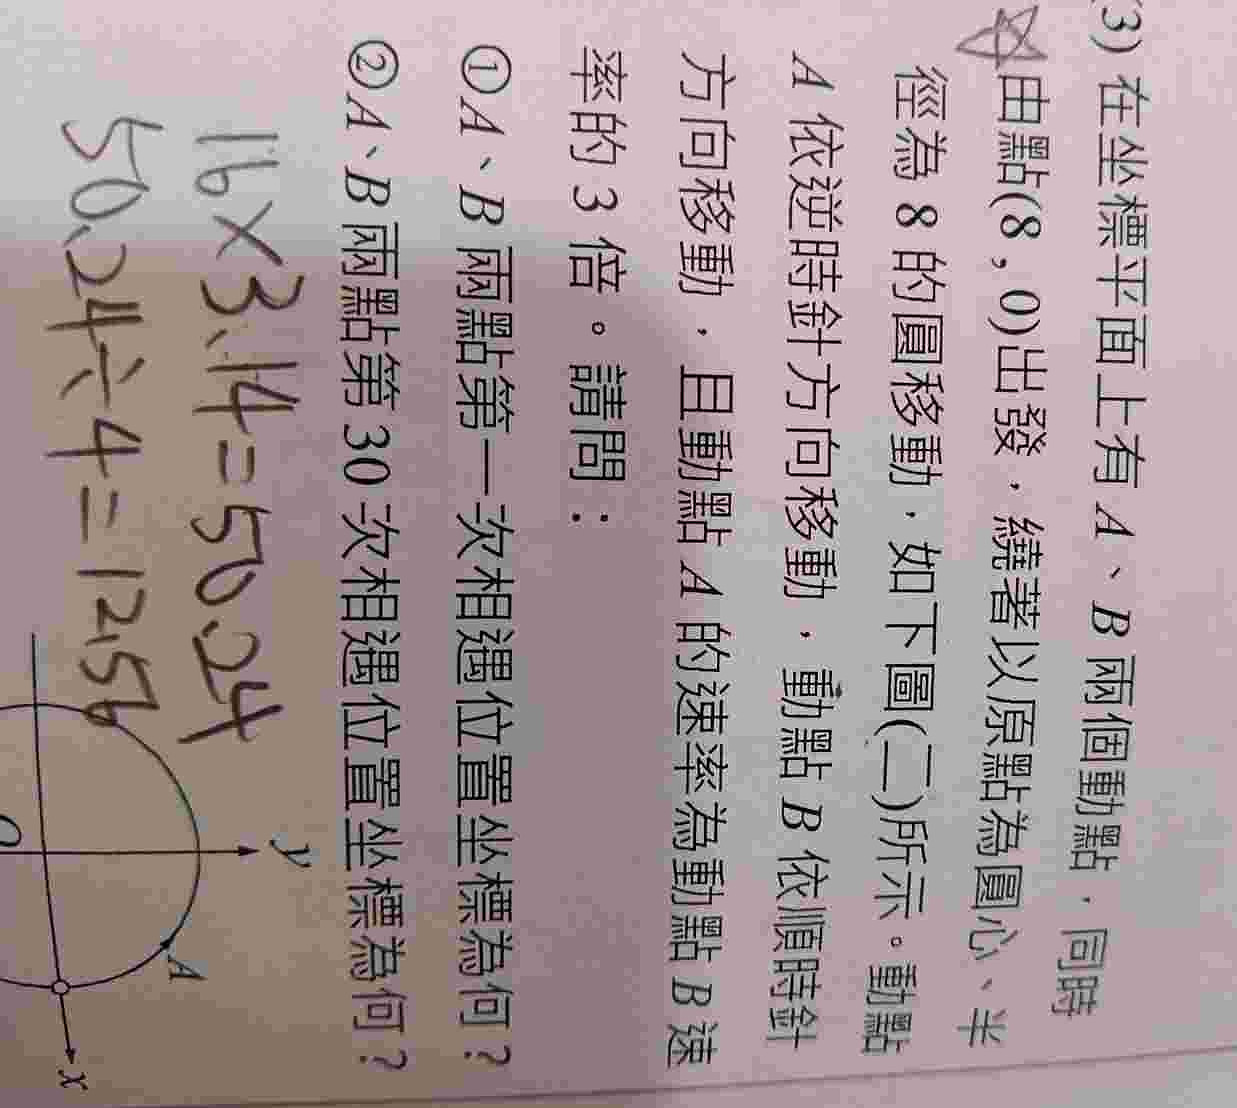 (3) 在坐標平面上有 A、B 兩個動點，同時
由點(8 , 0)出發，繞著以原點為圓心、半
徑為 8 的圓移動，如下圖(二)所示。動點
A 依逆時針方向移動，動點 B 依順時針
方向移動，且動點 A 的速率為動點 B 速
率的 3 倍。請問：
①A、B 兩點第一次相遇位置坐標為何？
②A、B 兩點第 30 次相遇位置坐標為何？
16×3.14=50.24
50.24÷4=12.56
y
A
O
x